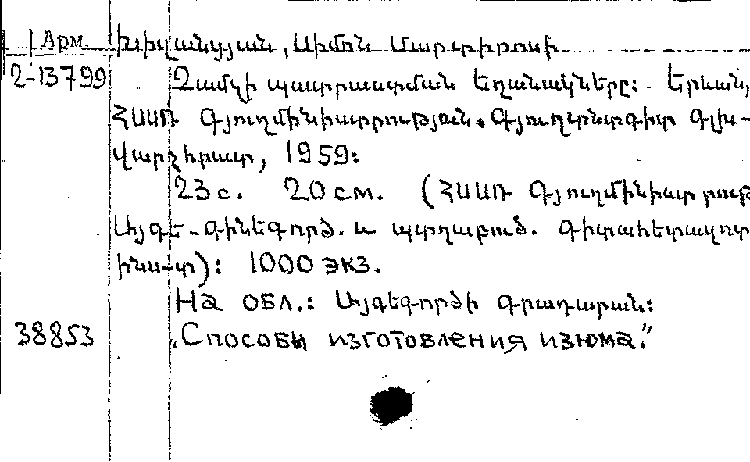 Арм Խիզանցյան, Սիմոն Մարտիրոսի
2-13799 Չամչի պատրաստման եղանակները: Երևան,
ՀՍՍՌ Գյուղմինիստրություն. Գյուղտնտգիտ Գլխ-
վարչ. հրատ, 1959:
23 с. 20 см. (ՀՍՍՌ Գյուղմինիստրութ
Այգե-գինեգործ. և պտղաբուծ. գիտահետազոտ
ինս-տ): 1000 экз.
На обл.: Այգեգործի գրադարան:
38853 „Способы изготовления изюма.”